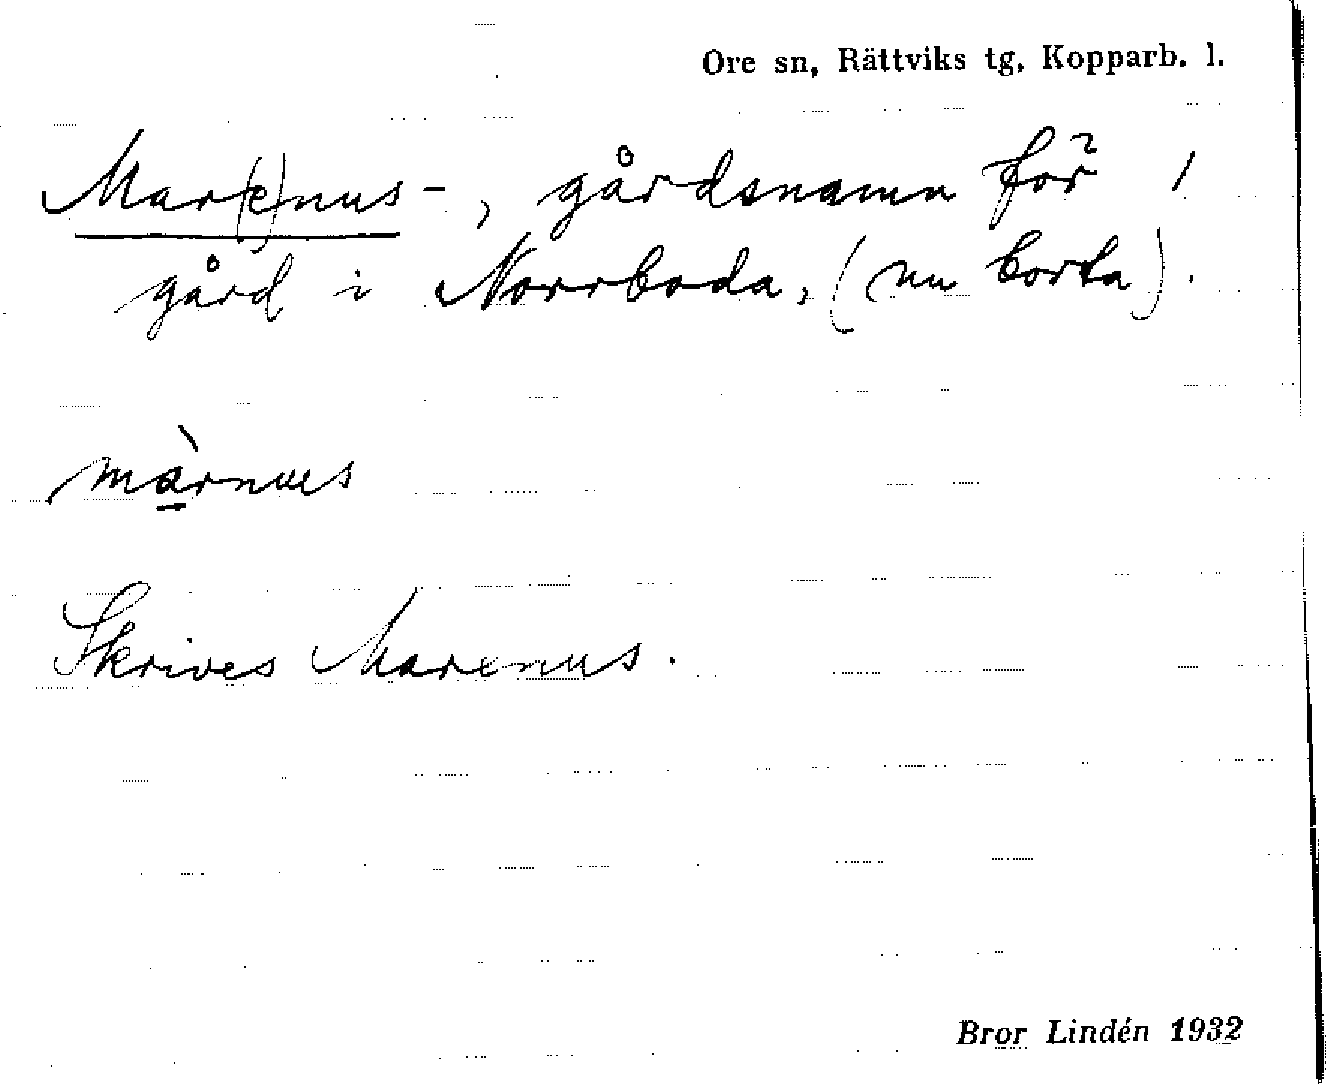 Ore sn, Rättviks tg, Kopparb. l.
Mar(e)nus-, gårdsnamn för 1
gård i Norrboda, (nu borta).
màrnus
Skrives Marenus.
Bror Lindén 1932